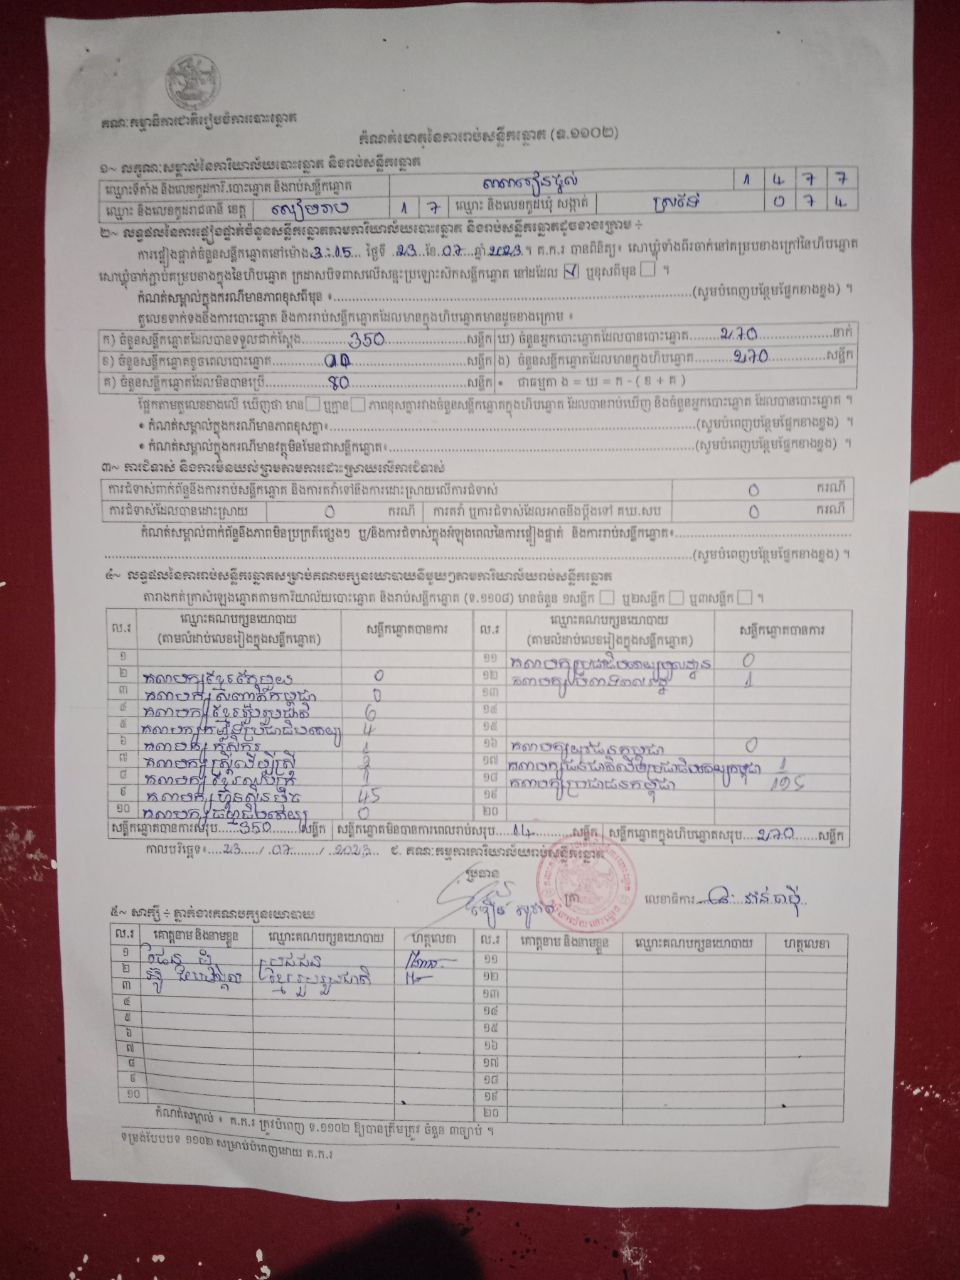 គណៈកម្មាធិការជាតិរៀបចំការបោះឆ្នោត
កំណត់ហេតុនៃការរាប់សន្លឹកឆ្នោត (ទ.១១០២)
១~ លក្ខណៈសម្គាល់នៃការិយាល័យបោះឆ្នោត និងរាប់សន្លឹកឆ្នោត
ឈ្មោះទីតាំង និងលេខកូដការិ.បោះឆ្នោត និងរាប់សន្លឹកឆ្នោត 1 4 7 7
ឈ្មោះ និងលេខកូដរាជធានី ខេត្ត សៀមរាប 1 7 ឈ្មោះ និងលេខកូដឃុំ សង្កាត់ 0 7 4
២~ លទ្ធផលនៃការផ្ទៀងផ្ទាត់ចំនួនសន្លឹកឆ្នោតតាមការិយាល័យបោះឆ្នោត និងរាប់សន្លឹកឆ្នោតដូចខាងក្រោម ÷
ការផ្ទៀងផ្ទាត់ចំនួនសន្លឹកឆ្នោតនៅម៉ោង 3:15 ថ្ងៃទី 23 ខែ 07 ឆ្នាំ 2023។ គ.ក.រ បានពិនិត្យ៖ សោឃ្លុំទាំងពីរចាក់នៅគម្របខាងក្រៅនៃហិបឆ្នោត
សោឃ្លុំចាក់ភ្ជាប់គម្របខាងក្នុងនៃហិបឆ្នោត ក្រដាសបិទពាសលើសន្ទះប្រឡោះសិកសន្លឹកឆ្នោត នៅដដែល ☑ ឬខុសពីមុន ☐ ។
កំណត់សម្គាល់ក្នុងករណីមានភាពខុសពីមុន ៖ (សូមបំពេញបន្ថែមផ្នែកខាងខ្នង) ។
តួលេខទាក់ទងនឹងការបោះឆ្នោត និងការរាប់សន្លឹកឆ្នោតដែលមានក្នុងហិបឆ្នោតមានដូចខាងក្រោម ៖
ក) ចំនួនសន្លឹកឆ្នោតដែលបានទទួលជាក់ស្តែង 350 សន្លឹក ឃ) ចំនួនអ្នកបោះឆ្នោតដែលបានបោះឆ្នោត 270 នាក់
ខ) ចំនួនសន្លឹកឆ្នោតខូចពេលបោះឆ្នោត សន្លឹក ង) ចំនួនសន្លឹកឆ្នោតដែលមានក្នុងហិបឆ្នោត 270 សន្លឹក
គ) ចំនួនសន្លឹកឆ្នោតដែលមិនបានប្រើ 80 សន្លឹក • ជាធម្មតា ង = ឃ = ក - ( ខ + គ )
ផ្អែកតាមតួលេខខាងលើ ឃើញថា មាន ☐ ឬគ្មាន ☐ ភាពខុសគ្នារវាងចំនួនសន្លឹកឆ្នោតក្នុងហិបឆ្នោត ដែលបានរាប់ឃើញ និងចំនួនអ្នកបោះឆ្នោត ដែលបានបោះឆ្នោត ។
• កំណត់សម្គាល់ក្នុងករណីមានភាពខុសគ្នា៖ (សូមបំពេញបន្ថែមផ្នែកខាងខ្នង) ។
• កំណត់សម្គាល់ក្នុងករណីមានវត្ថុមិនមែនជាសន្លឹកឆ្នោត៖ (សូមបំពេញបន្ថែមផ្នែកខាងខ្នង) ។
៣~ ការជំទាស់ និងការមិនយល់ព្រមតាមការដោះស្រាយលើការជំទាស់
ការជំទាស់ពាក់ព័ន្ធនឹងការរាប់សន្លឹកឆ្នោត និងការតវ៉ាទៅនឹងការដោះស្រាយលើការជំទាស់ 0 ករណី
ការជំទាស់ដែលបានដោះស្រាយ 0 ករណី ការតវ៉ា ឬការជំទាស់ដែលអាចនឹងប្តឹងទៅ គឃ.សប 0 ករណី
កំណត់សម្គាល់ពាក់ព័ន្ធនឹងភាពមិនប្រក្រតីផ្សេងៗ ឬ/និងការជំទាស់ក្នុងអំឡុងពេលនៃការផ្ទៀងផ្ទាត់ និងការរាប់សន្លឹកឆ្នោត៖
(សូមបំពេញបន្ថែមផ្នែកខាងខ្នង) ។
៤~ លទ្ធផលនៃការរាប់សន្លឹកឆ្នោតសម្រាប់គណបក្សនយោបាយនីមួយៗតាមការិយាល័យរាប់សន្លឹកឆ្នោត
តារាងកត់ត្រាសំឡេងឆ្នោតតាមការិយាល័យបោះឆ្នោត និងរាប់សន្លឹកឆ្នោត (ទ.១១០៨) មានចំនួន ១សន្លឹក ☐ ឬ២សន្លឹក ☐ ឬ៣សន្លឹក ☐ ។
ល.រ ឈ្មោះគណបក្សនយោបាយ សន្លឹកឆ្នោតបានការ ល.រ ឈ្មោះគណបក្សនយោបាយ សន្លឹកឆ្នោតបានការ
(តាមលំដាប់លេខរៀងក្នុងសន្លឹកឆ្នោត) (តាមលំដាប់លេខរៀងក្នុងសន្លឹកឆ្នោត)
១ ១១ 0
២ គណបក្សខ្មែរតែមួយ 0 ១២ 1
៣ គណបក្សសញ្ជាតិកម្ពុជា 0 ១៣
៤ គណបក្សខ្មែររួបរួមជាតិ 6 ១៤
៥ គណបក្សកម្លាំងប្រជាធិបតេយ្យ 4 ១៥
៦ គណបក្សកសិករ 1 ១៦ គណបក្សយុវជនកម្ពុជា 0
៧ គណបក្សស្ត្រីដើម្បីស្ត្រី ១៧ គណបក្សជនជាតិដើមប្រជាធិបតេយ្យកម្ពុជា 1
៨ ១៨ គណបក្សប្រជាជនកម្ពុជា 195
៩ គណបក្សហ្វ៊ុនស៊ិនប៉ិច 45 ១៩
១០ គណបក្សធម្មាធិបតេយ្យ 0 ២០
សន្លឹកឆ្នោតបានការសរុប 350 សន្លឹក សន្លឹកឆ្នោតមិនបានការពេលរាប់សរុប 14 សន្លឹក សន្លឹកឆ្នោតក្នុងហិបឆ្នោតសរុប 270 សន្លឹក
កាលបរិច្ឆេទ៖ 23 / 07 / 2023 ជ. គណៈកម្មការការិយាល័យរាប់សន្លឹកឆ្នោត
ប្រធាន
ត្រា លេខាធិការ
៥~ សាក្សី ÷ ភ្នាក់ងារគណបក្សនយោបាយ
ល.រ គោត្តនាម និងនាមខ្លួន ឈ្មោះគណបក្សនយោបាយ ហត្ថលេខា ល.រ គោត្តនាម និងនាមខ្លួន ឈ្មោះគណបក្សនយោបាយ ហត្ថលេខា
១ ប្រជាជន ១១
២ ខ្មែររួបរួមជាតិ ១២
៣ ១៣
៤ ១៤
៥ ១៥
៦ ១៦
៧ ១៧
៨ ១៨
៩ ១៩
១០ ២០
កំណត់សម្គាល់ ៖ គ.ក.រ ត្រូវបំពេញ ទ.១១០២ ឱ្យបានត្រឹមត្រូវ ចំនួន ៣ច្បាប់ ។
ទម្រង់បែបបទ ១១០២ សម្រាប់បំពេញដោយ គ.ក.រ